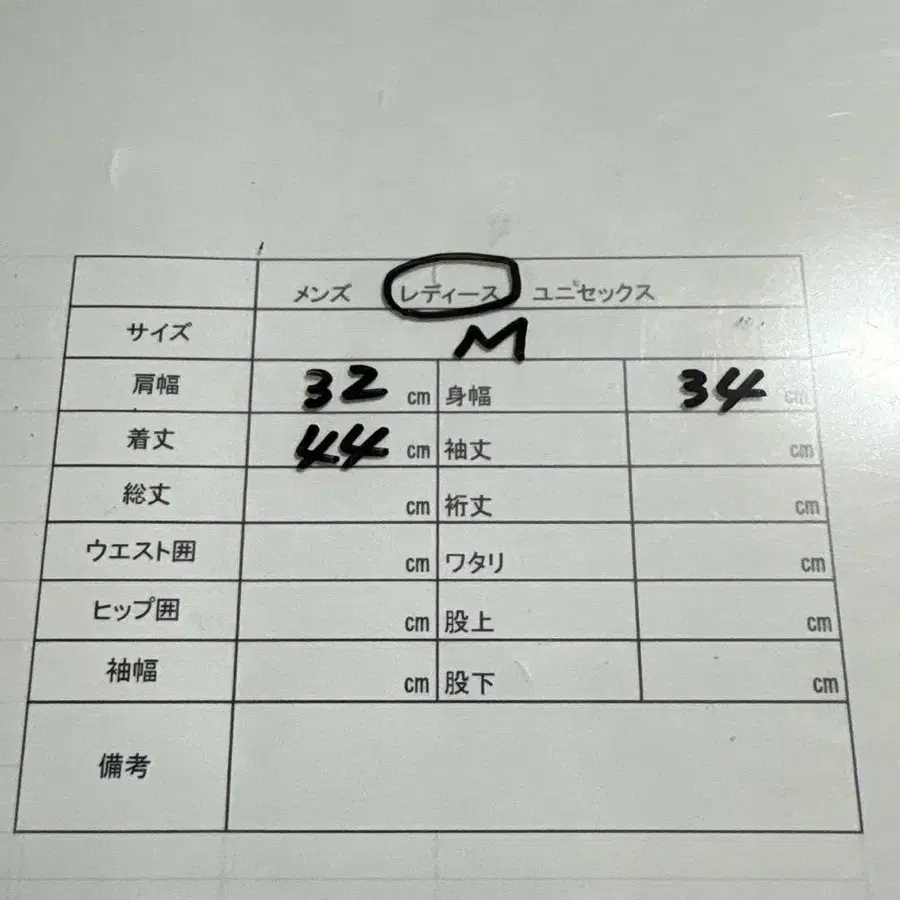 メンズ レディース ユニセックス
サイズ M
肩幅 32 cm 身幅 34 cm
着丈 44 cm 袖丈 cm
総丈 cm 裄丈 cm
ウエスト囲 cm ワタリ cm
ヒップ囲 cm 股上 cm
袖幅 cm 股下 cm
備考